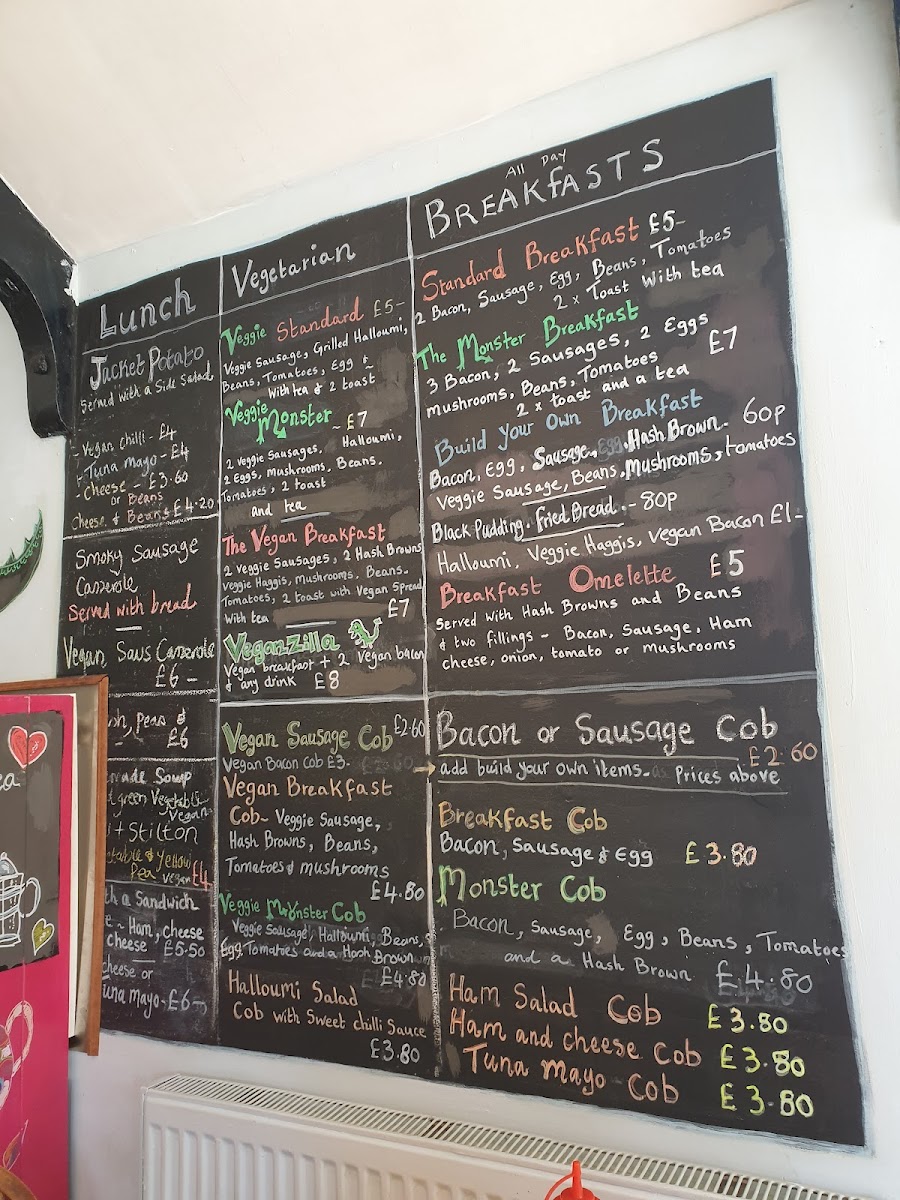 Lunch
Jacket Potato
Served with a Side Salad
- Vegan chilli - £4
- Tuna mayo - £4
- Cheese - £3.60
or Beans
Cheese & Beans £4.20
Smoky Sausage
Casserole
Served with bread
Vegan Saus Casserole
£6 -
peas &
£6
Soup
green Vegetable
Vegan
+ Stilton
& yellow
Pea vegan £4
a Sandwich
Ham, cheese
cheese £5.50
cheese or
Tuna mayo - £6 -
Vegetarian
Veggie Standard £5 -
Veggie Sausage, Grilled Halloumi,
Beans, Tomatoes, Egg &
With tea & 2 toast
Veggie
Monster - £7
2 Veggie Sausages, Halloumi,
2 Eggs, Mushrooms, Beans.
Tomatoes, 2 toast
and tea
The Vegan Breakfast
2 Veggie Sausages, 2 Hash Browns
Veggie Haggis, Mushrooms, Beans.
Tomatoes, 2 toast with Vegan Spread
With tea £7
Veganzilla
Vegan breakfast + 2 Vegan bacon
& any drink £8
Vegan Sausage Cob £2.60
Vegan Bacon Cob £3 -
Vegan Breakfast
Cob - Veggie Sausage,
Hash Browns, Beans,
Tomatoes & mushrooms
£4.80
Veggie Monster Cob
Veggie Sausage, Halloumi, Beans,
Egg, Tomatoes and a Hash Brown
£4.80
Halloumi Salad
Cob with Sweet chilli Sauce
£3.80
All Day
BREAKFASTS
Standard Breakfast £5 -
2 Bacon, Sausage, Egg, Beans, Tomatoes
2 x Toast with tea
The Monster Breakfast
3 Bacon, 2 Sausages, 2 Eggs £7
mushrooms, Beans, Tomatoes
2 x toast and a tea
Build your Own Breakfast
Bacon, Egg, Sausage, Hash Brown. 60p
Veggie Sausage, Beans, Mushrooms, tomatoes
Black Pudding. Fried Bread. - 80p
Halloumi, Veggie Haggis, Vegan Bacon £1 -
Breakfast Omelette £5
Served with Hash Browns and Beans
& two fillings - Bacon, Sausage, Ham
cheese, onion, tomato or mushrooms
Bacon or Sausage Cob
£2.60
add build your own items. Prices above
Breakfast Cob
Bacon, Sausage & Egg £3.80
Monster Cob
Bacon, Sausage, Egg, Beans, Tomatoes
and a Hash Brown £4.80
Ham Salad Cob £3.80
Ham and cheese Cob £3.80
Tuna mayo Cob £3.80